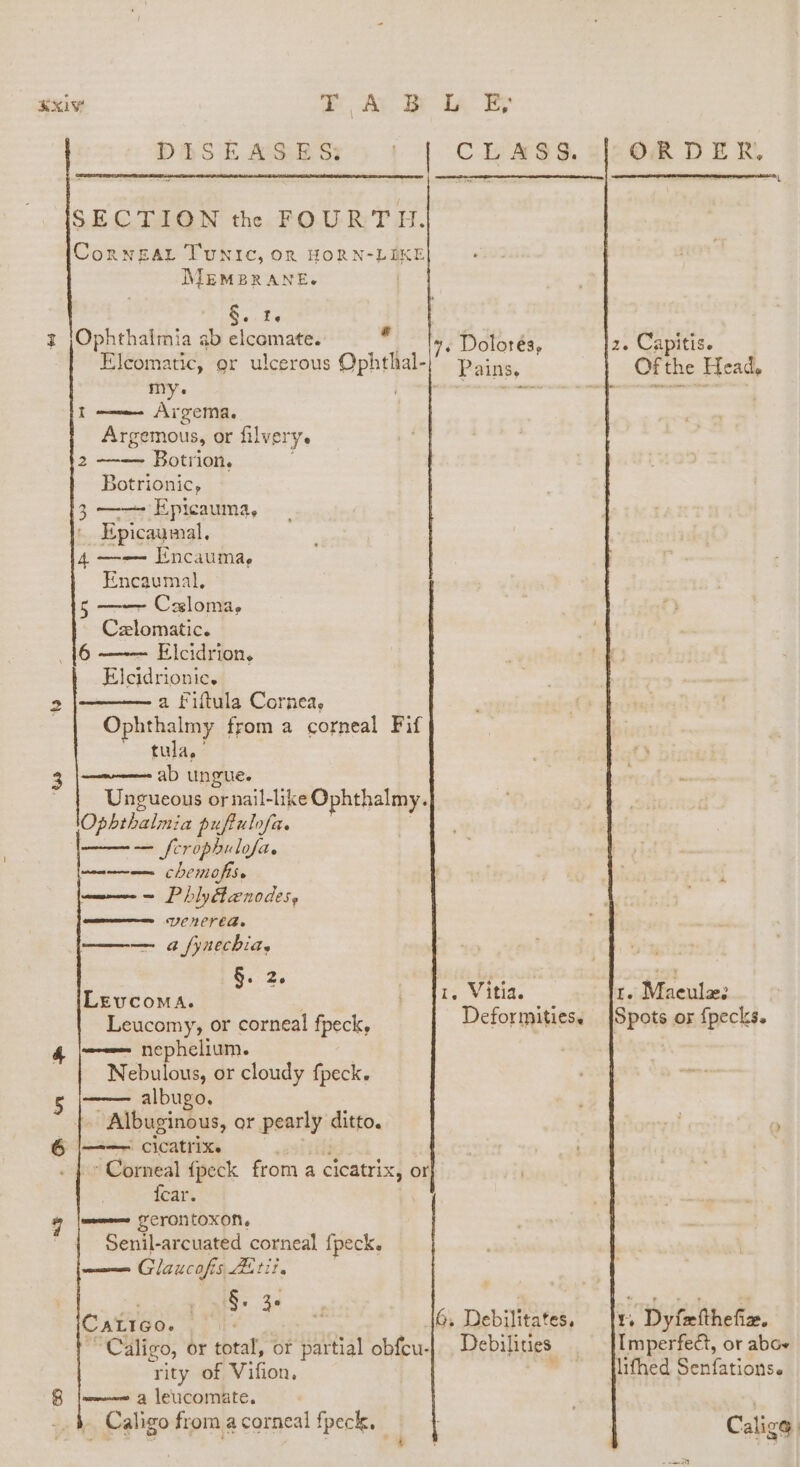 xxiv TABLE,
DISEASES. CLASS. ORDER.
SECTION the FOURTH.
CORNEAL TUNIC, OR HORN-LIKE
MEMBRANE.
§. 1.
1 Ophthalmia ab elcomate. 7. Dolores, 2. Capitis.
Elcomatic, or ulcerous Ophthal- Pains, Of the Head,
my.
1 —— Argema.
Argemous, or ſilvery.
2 —— Botrion.
Botrionic,
3 —— Epicauma,
Epicaumal.
4 —— Encauma,
Encaumal.
5 —— Cæloma,
Cælomatic.
6 —— Elcidrion,
Elcidrionic.
2 —— a Fiſtula Cornea,
Ophthalmy from a corneal Fiſ
tula,
3 —— ab ungue.
Ungueous or nail-like Ophthalmy.
Ophthalmia puſtuloſa.
—— — ſcrophuloſa.
—— chemoſis.
—— — Phlyctænodes,
—— venerea.
—— a ſynechia,
§. 2.
LEUCOMA. 1. Vitia. 1. Maculæ:
Leucomy, or corneal ſpeck, Deformities. Spots or ſpecks.
4 —— nephelium.
Nebulous, or cloudy ſpeck.
5 —— albugo.
Albuginous, or pearly ditto.
6 —— cicatrix.
Corneal ſpeck from a cicatrix, or
ſcar.
7 —— gerontoxon.
Senil-arcuated corneal ſpeck.
—— Glaucoſis Ætii.
§. 3.
CALIGO. 6. Debilitates. 1. Dyſæſtheſiæ.
Caligo, or total, or partial obſcu- Debilities Imperfect, or abo-
rity of Viſion. liſhed Senſations.
8 —— a leucomate.
Caligo from a corneal ſpeck.
Caligo